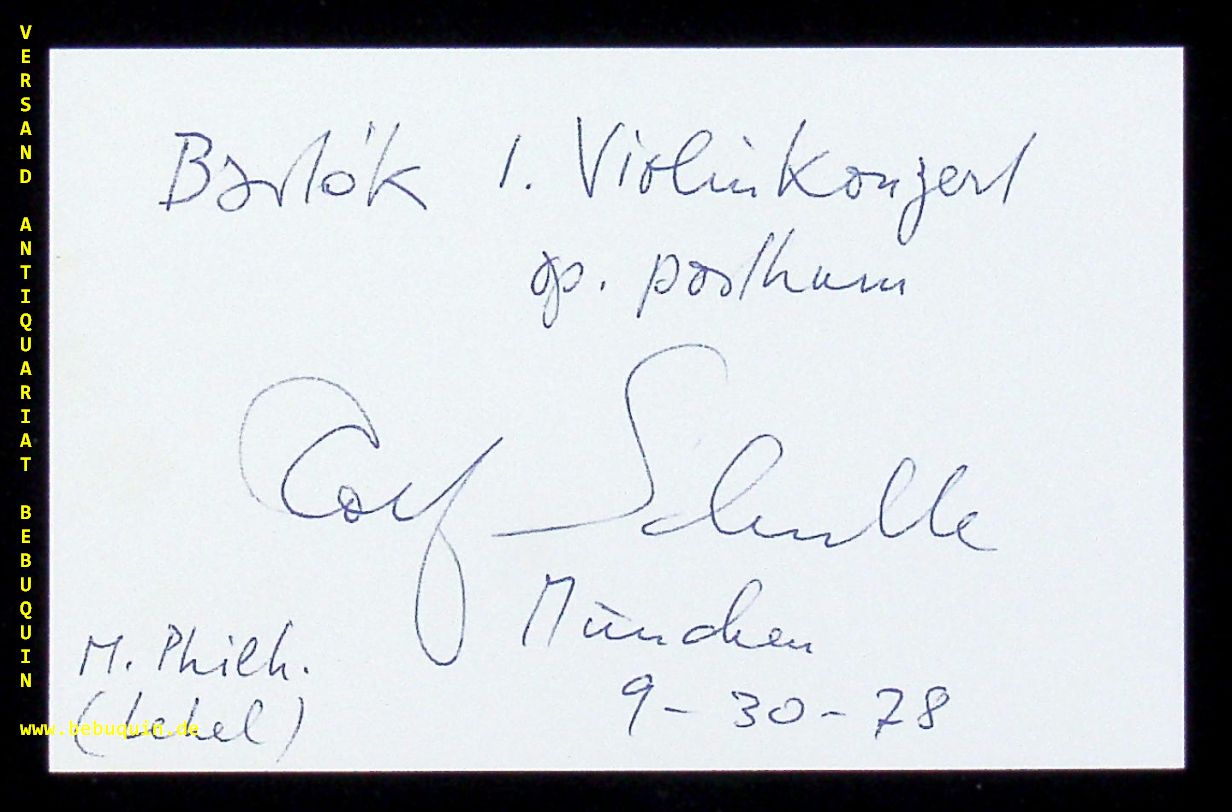 VERSAND ANTIQUARIAT BEBUQUIN
Bartók 1. Violinkonzert
op. posthum
Rolf Schulte
München
9-30-78
M. Philh.
(Lehel)
www.bebuquin.de